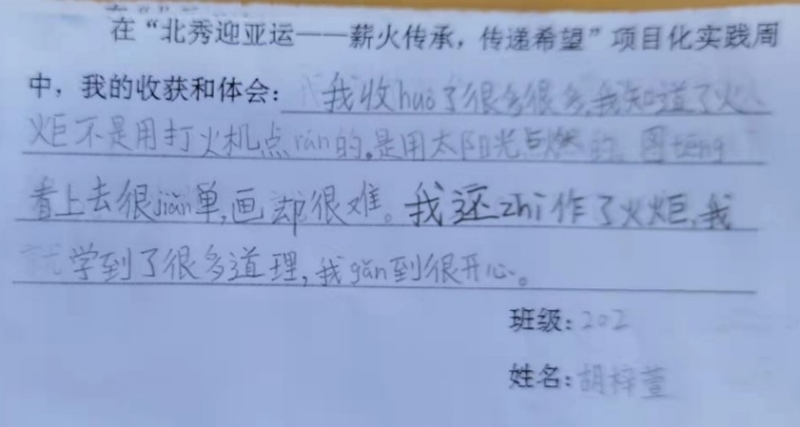 在“北秀迎亚运——薪火传承，传递希望”项目化实践周
中，我的收获和体会：我收huò了很多很多，我知道了火
炬不是用打火机点rán的。是用太阳光点燃的。图téng
看上去很jiǎn单，画却很难。我还zhì作了火炬，我
学到了很多道理，我gǎn到很开心。
班级：202
姓名：胡梓萱